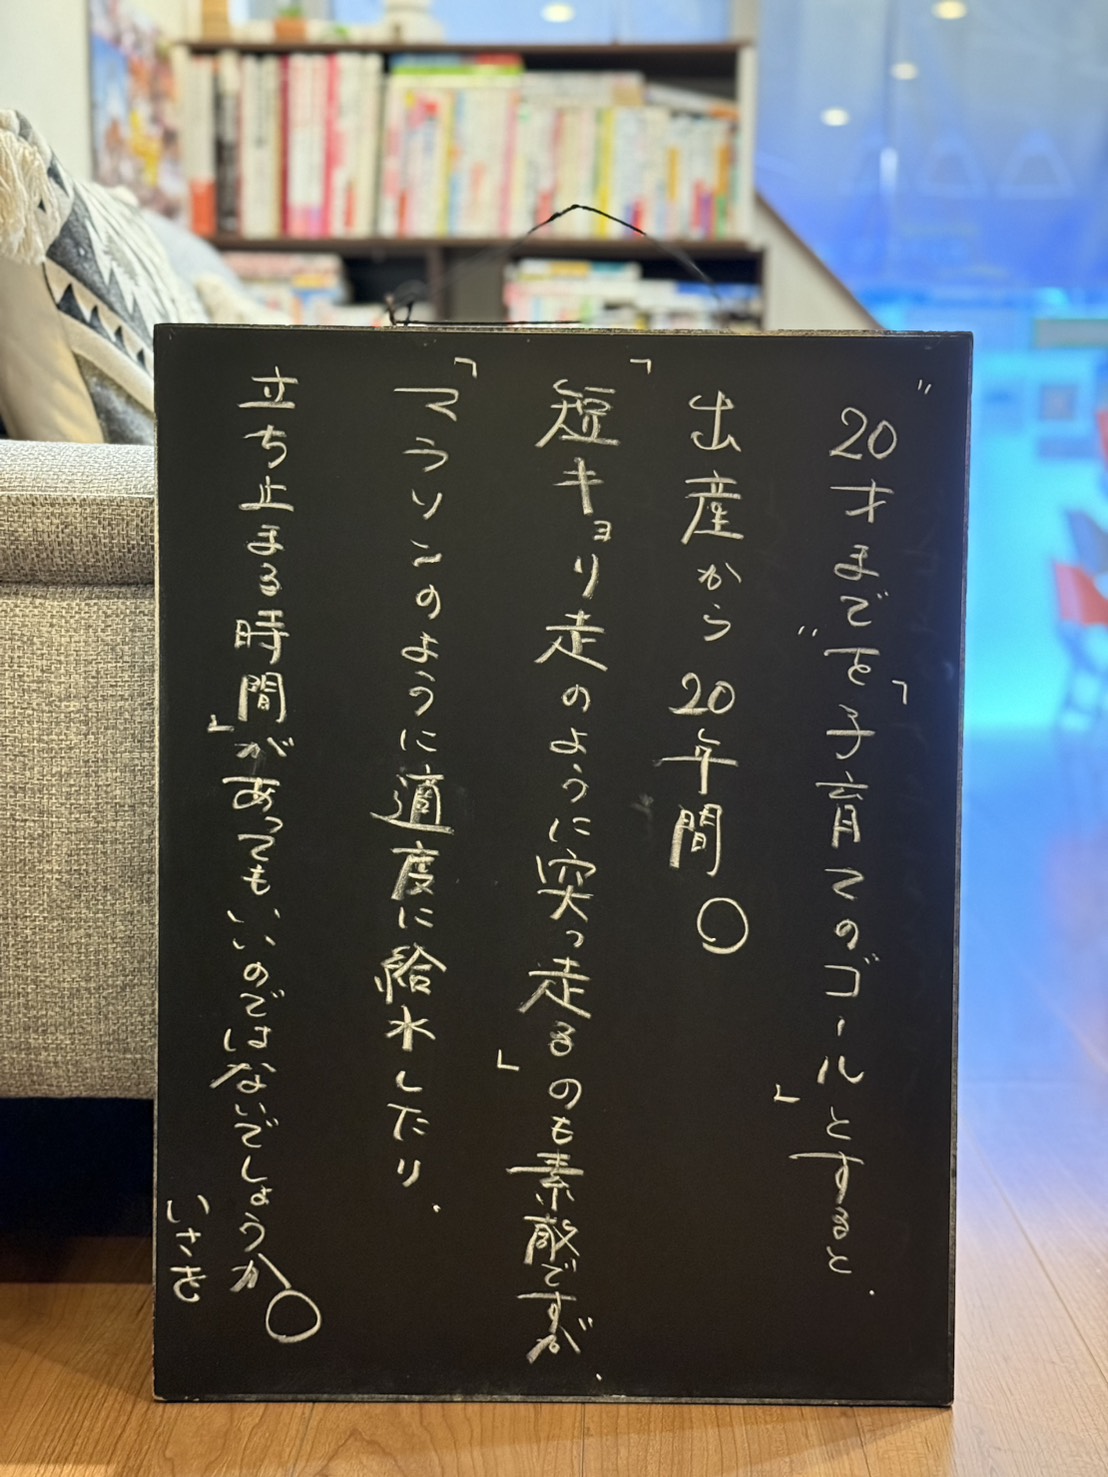 "20才まで"を「子育てのゴール」とすると.
出産から20年間○
「短キョリ走のように突っ走る」のも素敵ですが.
「マラソンのように適度に給水したり.
立ち止まる時間」があってもいいのではないでしょうか○
いさを